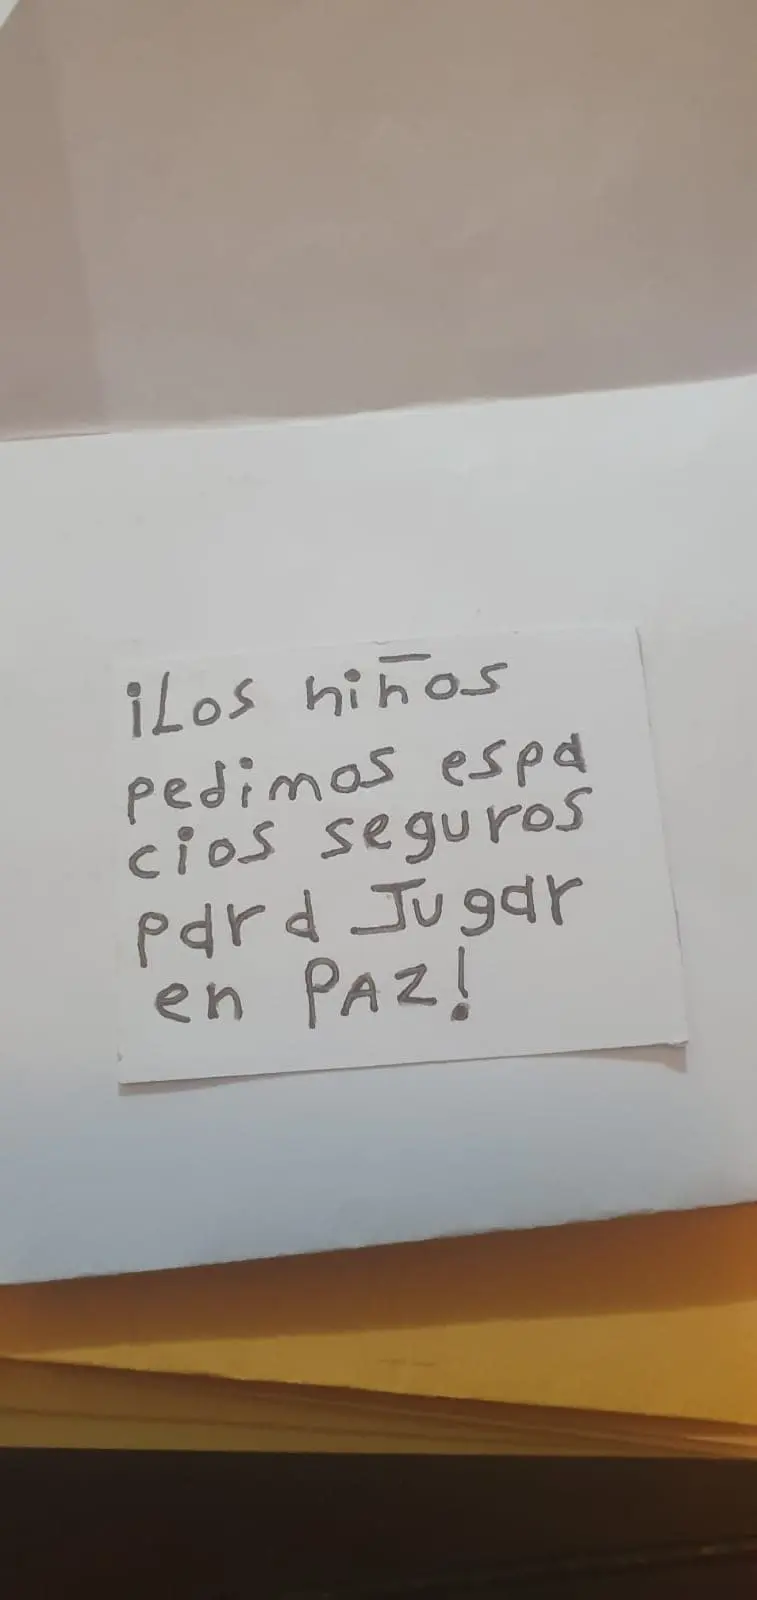 ¡Los niños
pedimos espa
cios seguros
para Jugar
en PAZ!